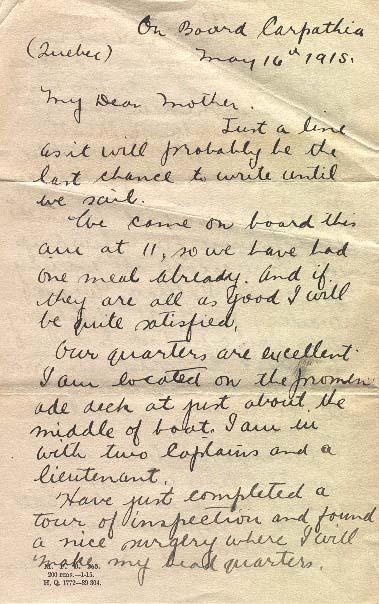 On Board Carpathia
(Quebec)
May 16th 1915.
My Dear Mother.
Just a line
as it will probably be the
last chance to write until
we sail.
We came on board this
am at 11, so we have had
one meal already. And if
they are all as good I will
be quite satisfied.
Our quarters are excellent.
I am located on the promen
ade deck at just about the
middle of boat. I am in
with two Captains and a
lieutenant.
Have just completed a
tour of inspection and found
a nice surgery where I will
make my head quarters.
200 rms.—1-15.
H. Q. 1772—39 304.